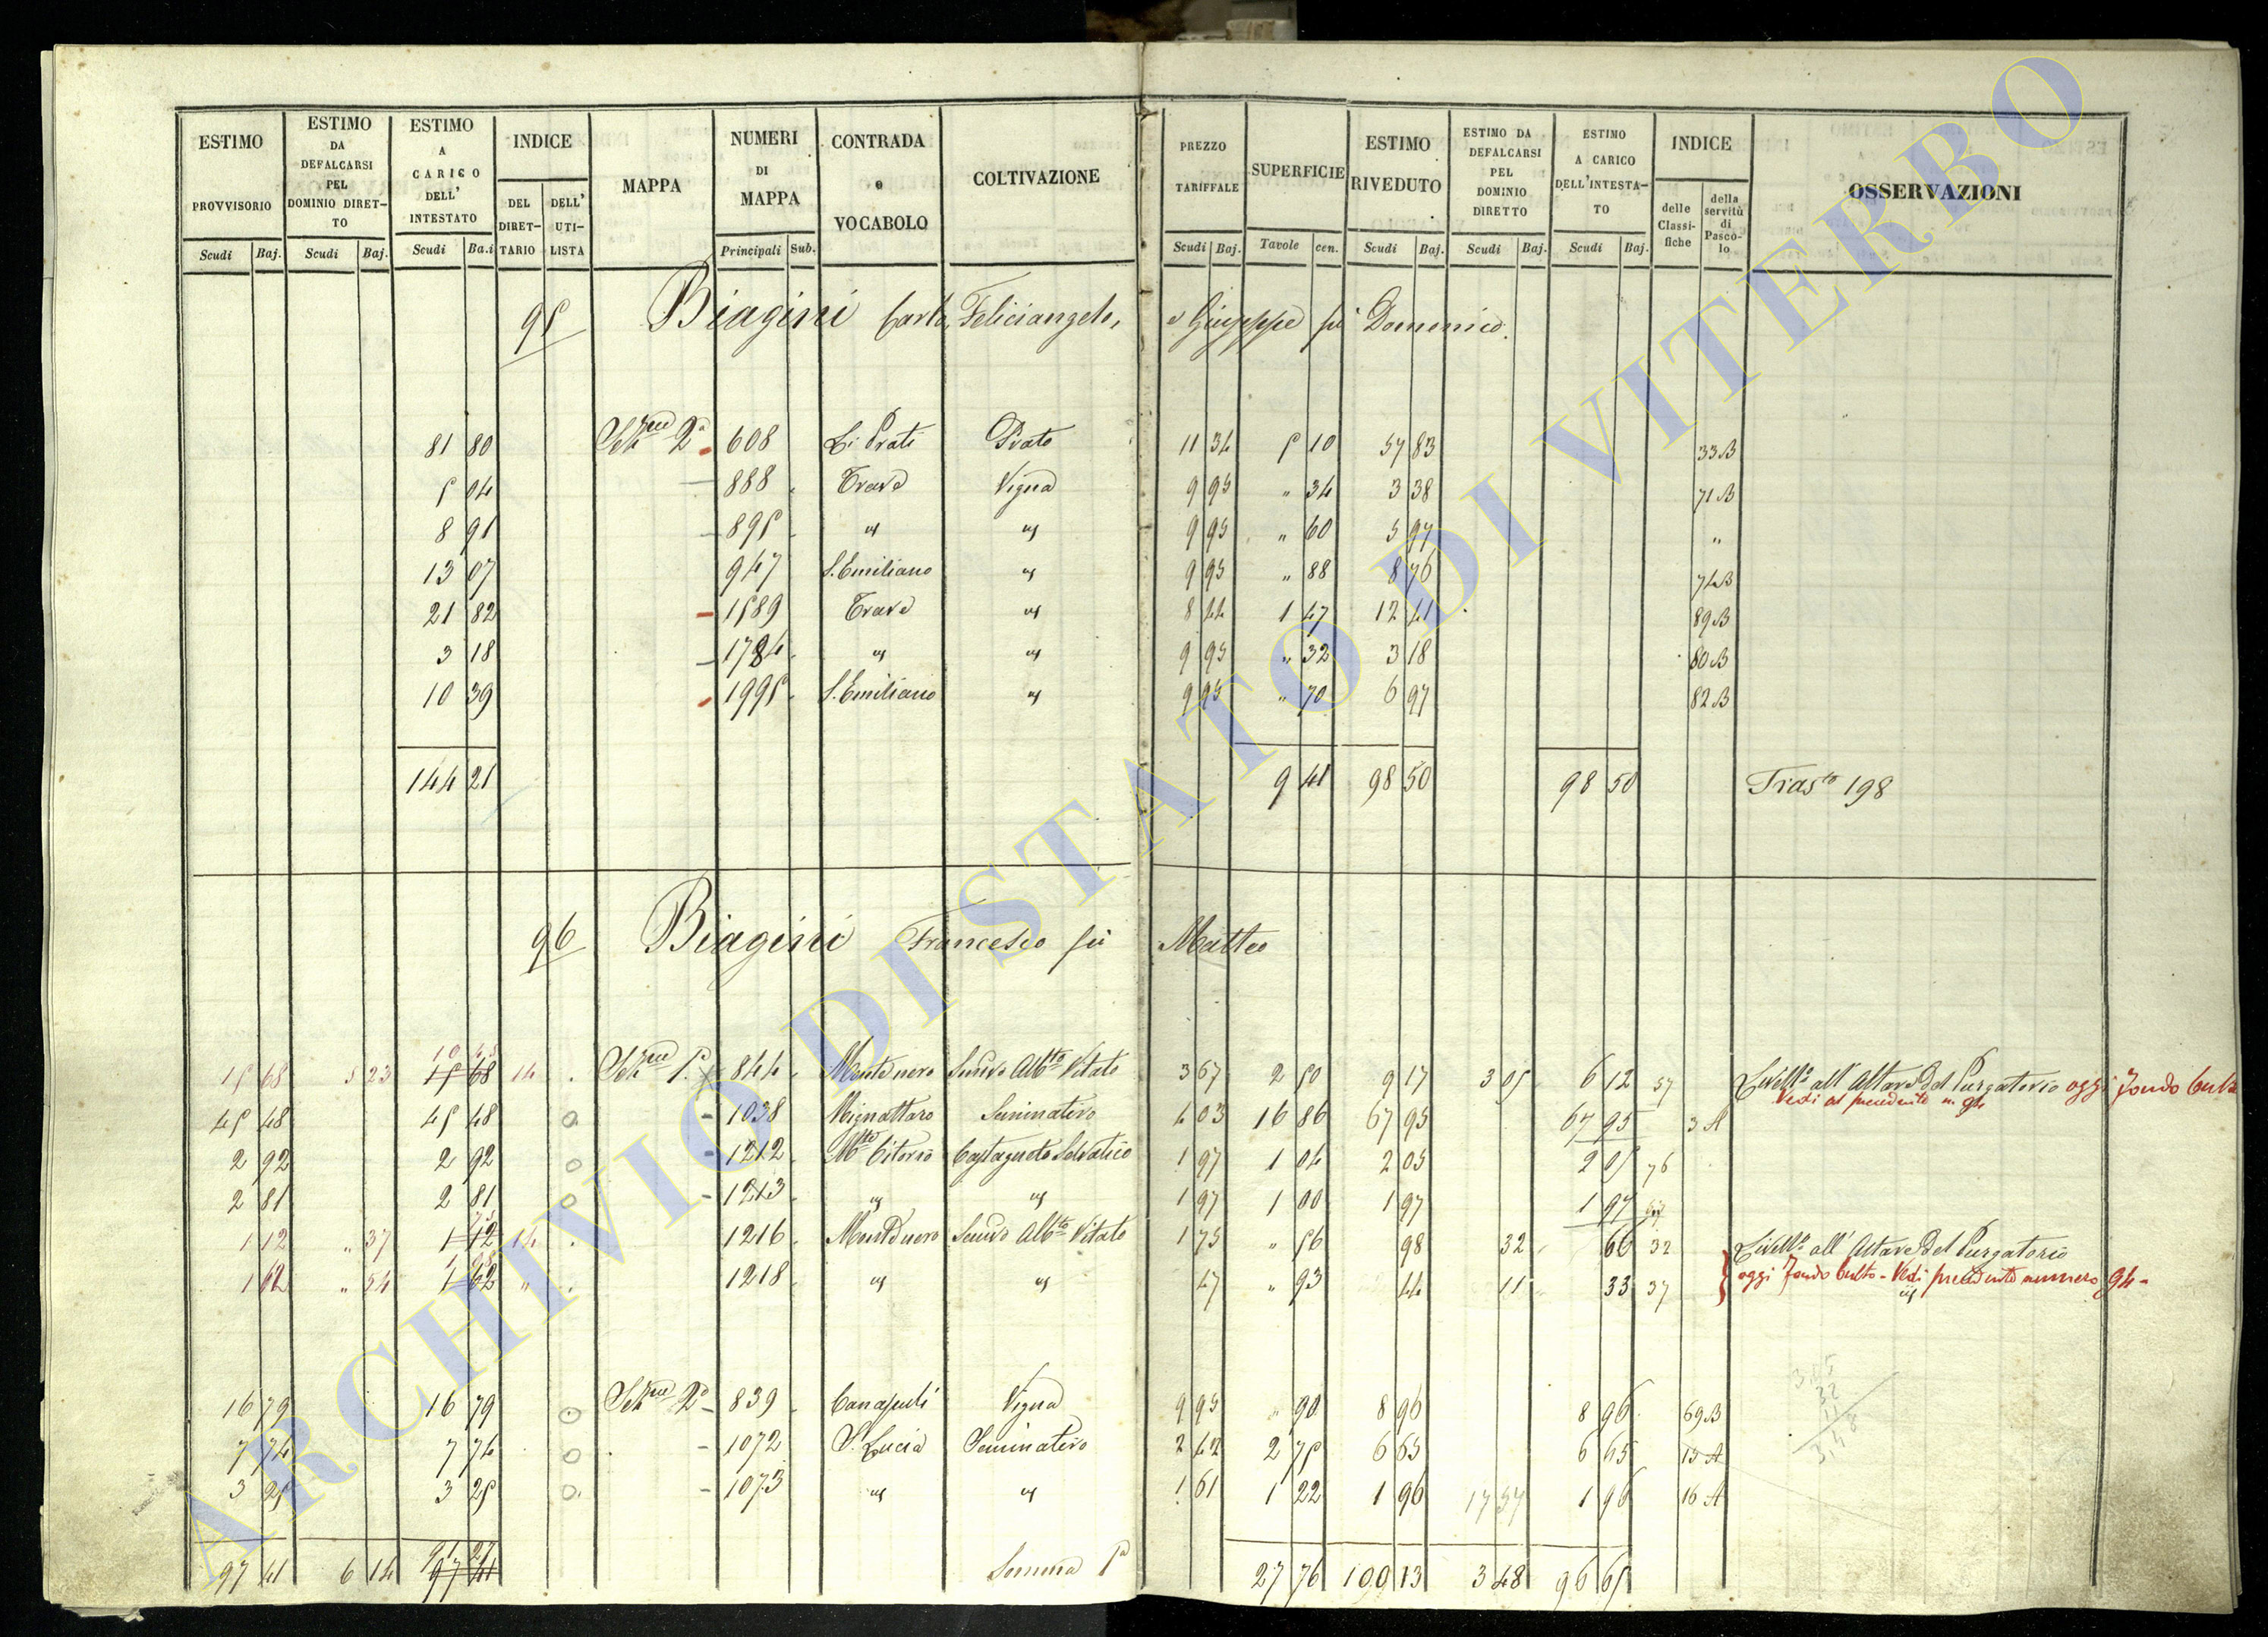 ESTIMO PROVVISORIO | ESTIMO DA DEFALCARSI PEL DOMINIO DIRET-TO | ESTIMO A CARICO DELL' INTESTATO | INDICE | MAPPA | NUMERI DI MAPPA | CONTRADA e VOCABOLO | COLTIVAZIONE | PREZZO TARIFFALE | SUPERFICIE | ESTIMO RIVEDUTO | ESTIMO DA DEFALCARSI PEL DOMINIO DIRETTO | ESTIMO A CARICO DELL'INTESTA-TO | INDICE | OSSERVAZIONI
Scudi Baj. | Scudi Baj. | Scudi Ba.i | DEL DIRET-TARIO | DELL' UTI-LISTA | Principali Sub. | Scudi Baj. | Tavole cen. | Scudi Baj. | Scudi Baj. | Scudi Baj. | delle Classi-fiche | della servitù di Pasco-lo
95 Biagini Carlo, Feliciangelo, e Giuseppe fù Domenico.
81 80 | Sezne 2a | 608 | Li Prati | Prato | 11 34 | 5 10 | 57 83 | 33 B
5 04 | 888 | Trave | Vigna | 9 95 | " 34 | 3 38 | 71 B
8 91 | 895 | " | " | 9 95 | " 60 | 5 97 | "
13 07 | 947 | S. Emiliano | " | 9 95 | " 88 | 8 76 | 74 B
21 82 | 1589 | Trave | " | 8 44 | 1 47 | 12 41 | 89 B
3 18 | 1784 | " | " | 9 95 | " 32 | 3 18 | 80 B
10 39 | 1995 | S. Emiliano | " | 9 95 | " 70 | 6 97 | 82 B
144 21 | 9 41 | 98 50 | 98 50 | Trasto 198
96 Biagini Francesco fù Matteo
15 68 | 5 23 | 15 68 | 14 | Sezne 1a | 844 | Montenero | Semivo Albto Vitato | 3 67 | 2 50 | 9 17 | 3 05 | 6 12 | 37 | Livello all' Altare del Purgatorio oggi Fondo Culto
Vedi al precedente n. 94
45 48 | 45 48 | 1038 | Mignattaro | Seminativo | 4 03 | 16 86 | 67 95 | 67 95 | 3 A
2 92 | 2 92 | 1212 | Mte Citorio | Castagneto Selvatico | 1 97 | 1 04 | 2 05 | 2 05 | 76
2 81 | 2 81 | 1213 | " | " | 1 97 | 1 00 | 1 97 | 1 97
1 12 | " 37 | 1 12 | 14 | 1216 | Montenero | Semivo Albto Vitato | 1 75 | " 56 | 98 | 32 | 66 | 32 | Livello all' Altare del Purgatorio
1 62 | " 54 | 1 62 | " | 1218 | " | " | 47 | " 93 | 44 | 11 | 33 | 37 | oggi Fondo Culto - Vedi precedente numero 94 -
16 79 | 16 79 | Sezne 2a | 839 | Canapuli | Vigna | 9 95 | " 90 | 8 96 | 8 96 | 69 B
7 74 | 7 74 | 1072 | S. Lucia | Seminativo | 2 42 | 2 75 | 6 65 | 6 65 | 15 A
3 25 | 3 25 | 1073 | " | " | 1 61 | 1 22 | 1 96 | 17 57 | 1 96 | 16 A
3.05
32
11
3.48
97 41 | 6 14 | 97 41 | Somma 1a | 27 76 | 100 13 | 3 48 | 96 65
ARCHIVIO DI STATO DI VITERBO